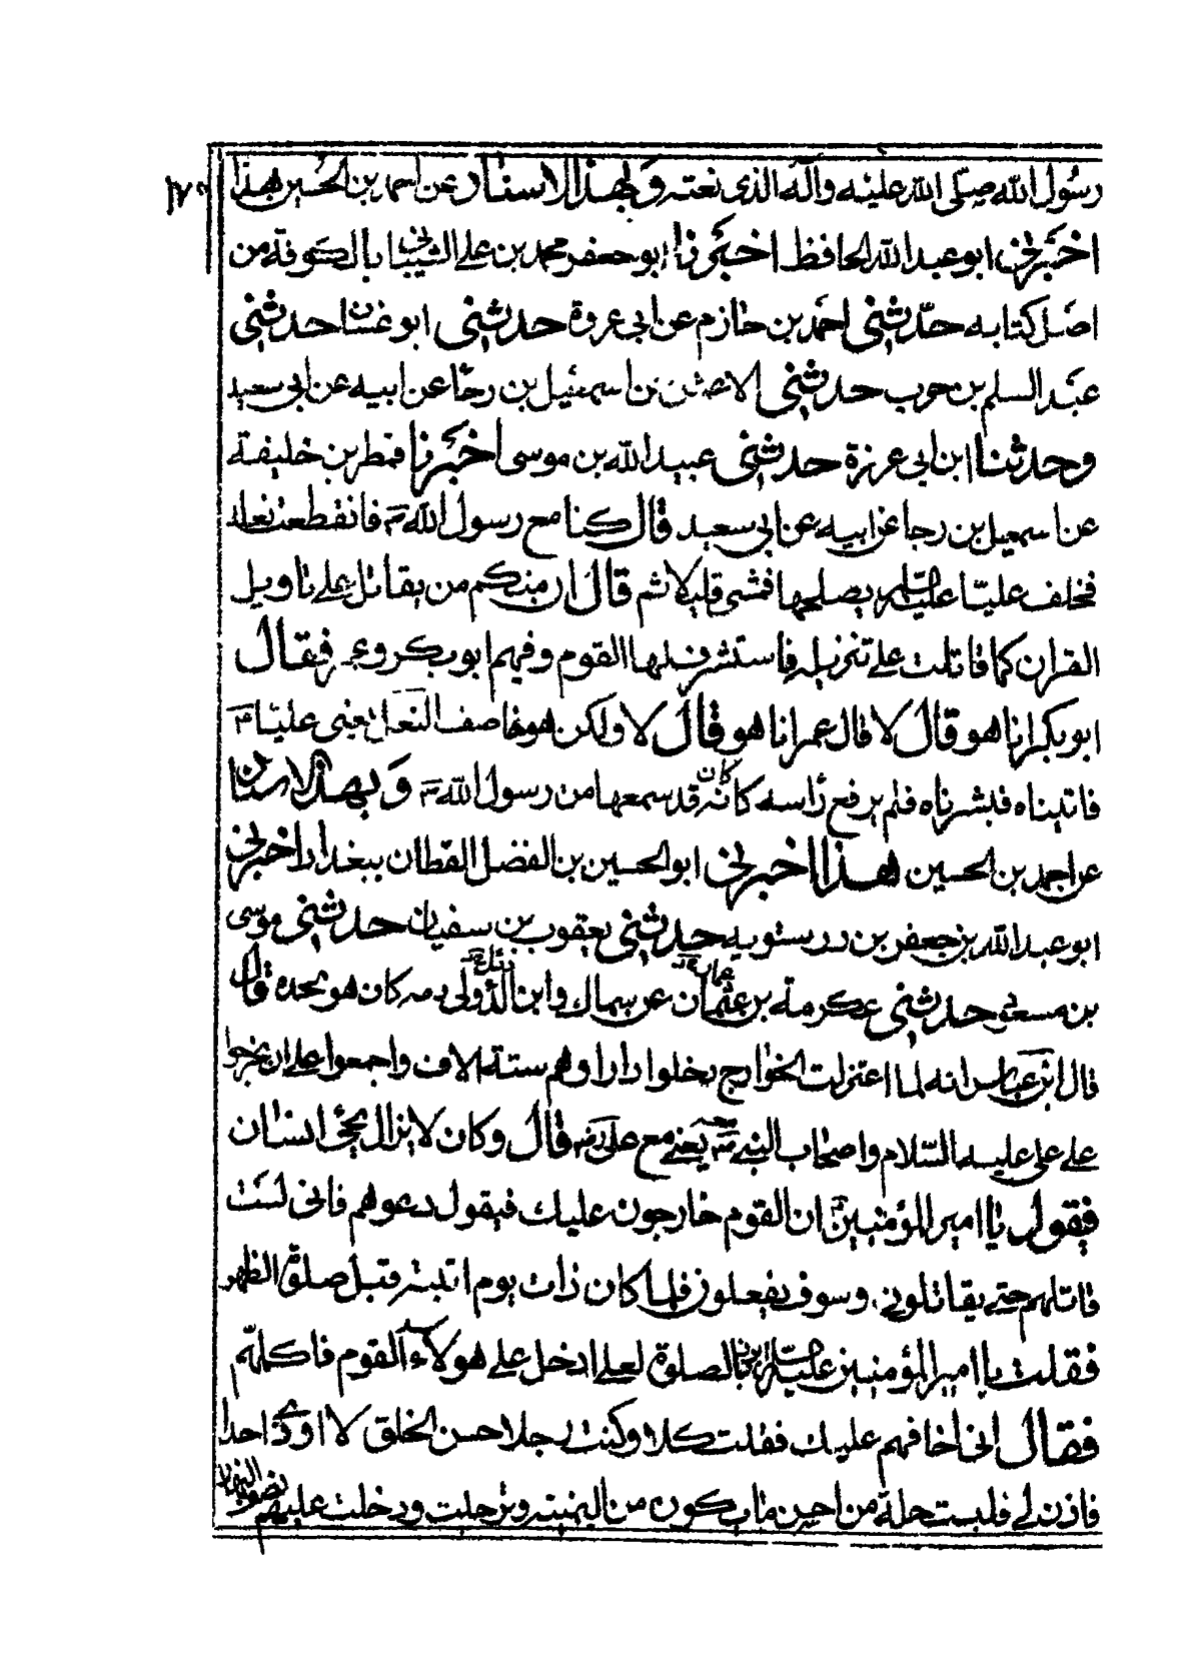 رسول الله صلى الله عليه وآله الذى نعته وبهذا الاسناد عن احمد بن الحسين هذا
اخبرنى ابو عبدالله الحافظ اخبرنا ابو جعفر محمد بن على الشيبانى بالكوفة من
اصل كتابه حدثنى احمد بن حازم عن ابى عروة حدثنى ابو غسان حدثنى
عبد السلم بن حرب حدثنى الاعمش عن اسمعيل بن رجا عن ابيه عن ابى سعيد
وحدثنا ابن ابى عرزة حدثنى عبيد الله بن موسى اخبرنا فطر بن خليفة
عن اسمعيل بن رجا عن ابيه عن ابى سعيد قال كنا مع رسول الله ص فانقطعت نعله
فخلف عليا عليه السلم يصلحها فمشى قليلا ثم قال ان منكم من يقاتل على تاويل
القران كما قاتلت على تنزيله فاستشرف لها القوم وفيهم ابو بكر وعمر فقال
ابو بكر انا هو قال لا قال عمر انا هو قال لا ولكن هو خاصف النعل يعنى عليا م
فاتيناه فبشرناه فلم يرفع راسه كانه كان قد سمعها من رسول الله ص وبهذا الاسناد
عن احمد بن الحسين هذا اخبرنى ابو الحسين بن الفضل القطان ببغداد اخبرنى
ابو عبد الله بن جعفر بن درستويه حدثنى يعقوب بن سفيان حدثنى موسى
بن مسعود حدثنى عكرمة بن عثمان عمار عن سماك وابن الدؤلى كان هو يحده قال
قال ابن عباس انه لما اعتزلت الخوارج دخلوا دارا وهم ستة الاف واجمعوا على ان يخرجوا
على على عليه السلام واصحاب النبى ص يعنى مع على قال وكان لا يزال يجئ انسان
فيقول يا امير المؤمنين ان القوم خارجون عليك فيقول دعوهم فانى لست
قاتلهم حتى يقاتلونى وسوف يفعلون فلما كان ذات يوم اتيته قبل صلوة الظهر
فقلت يا امير المؤمنين عليه السلم ابرد بالصلوة لعلى ادخل على هولاء القوم فاكلمهم
فقال انى اخافهم عليك فقلت كلا وكنت رجلا حسن الخلق لا اوذى احدا
فاذن لى فلبست حلة من احسن ما يكون من اليمنية وترجلت ودخلت عليهم نصف النهار